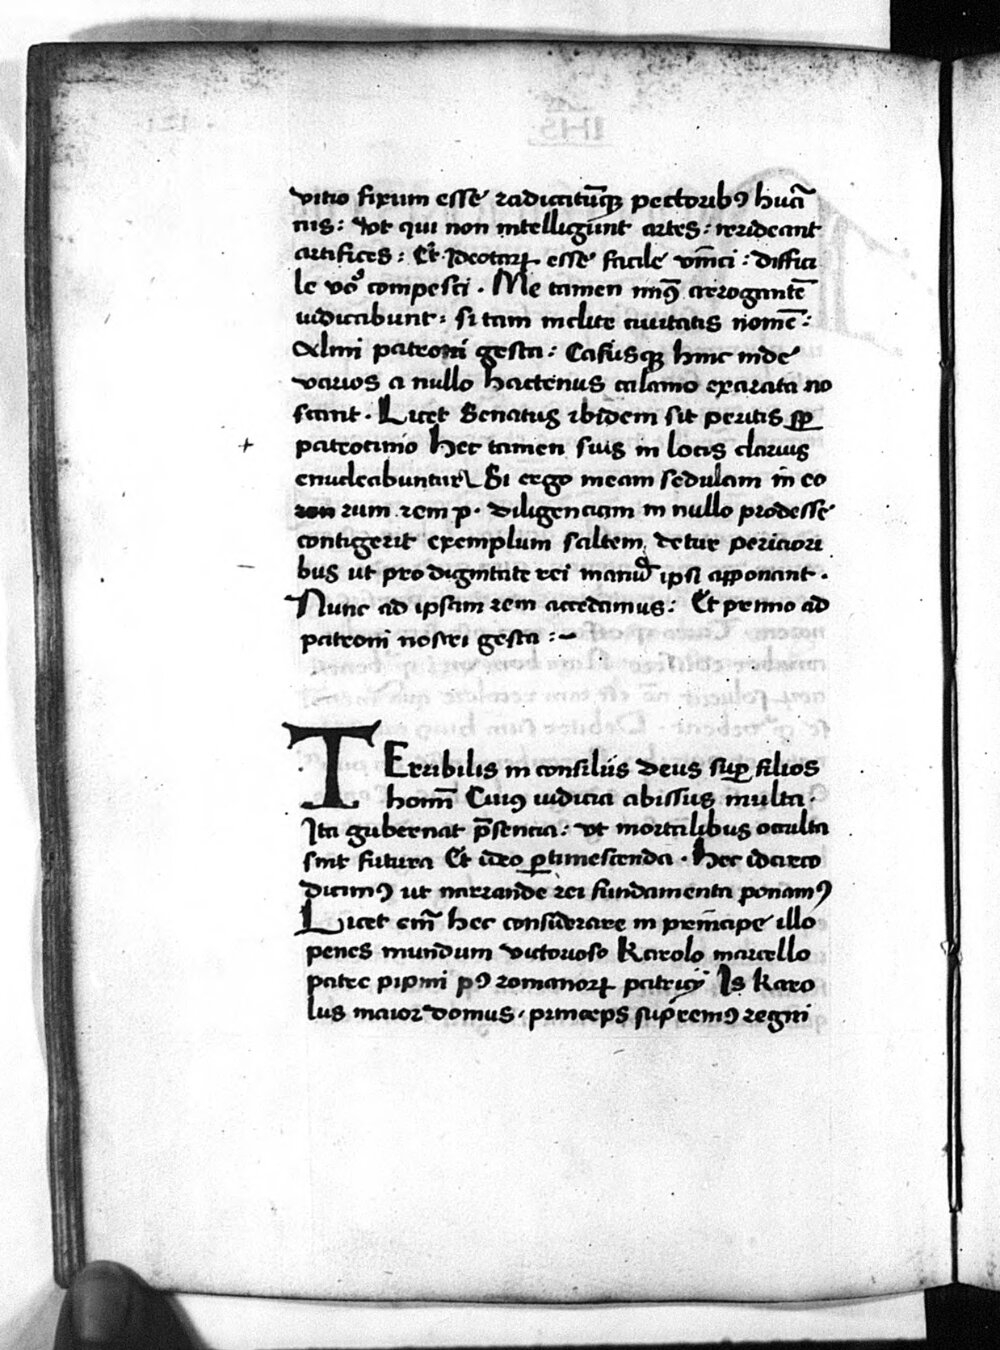 vitio fixum esse radicitūqȝ pectoribꝯ huā
nis: Vt qui non intelligunt artes: irrideant
artifices: Et Ideotarꝝ esse facile vīnci: diffici
le vō compesci. Me tamen minꝯ arrogantē
iudicabunt: si tam inclite ciuitatis nomē:
Almi patroni gesta: Casusqȝ hinc inde
varios a nullo hactenus calamo exarata no
scant. Licet Senatus ibidem sit peritis
patrocinio hec tamen suis in locis clarius
enucleabuntur Si ergo meam sedulam in eo
rum rem p. diligenciam in nullo prodesse
contigerit exemplum saltem detur pericïori
bus ut pro dignitate rei manū ipsi apponant.
Nunc ad ipsam rem accedamus: Et primo ad
patroni nostri gesta:~
TErribilis in consiliis deus suꝑ filios
homī Cuiꝯ iudicia abissus multa:
Ita gubernat p̄sencia: vt mortalibus occulta
sint futura Et ideo ꝑtimescenda. Hec idcirco
dicimꝯ ut narrande rei fundamenta ponamꝯ
Licet eni̅ hec considerare in principe illo
penes mundum victorioso Karolo marcello
patre pipini pꝯ romanorꝝ patricij Is Karo
lus maior domus, princeps supremꝯ regni